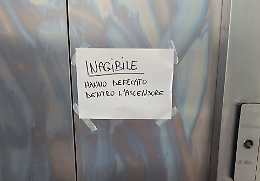 INAGIBILE
HANNO DEFECATO
DENTRO L'ASCENSORE